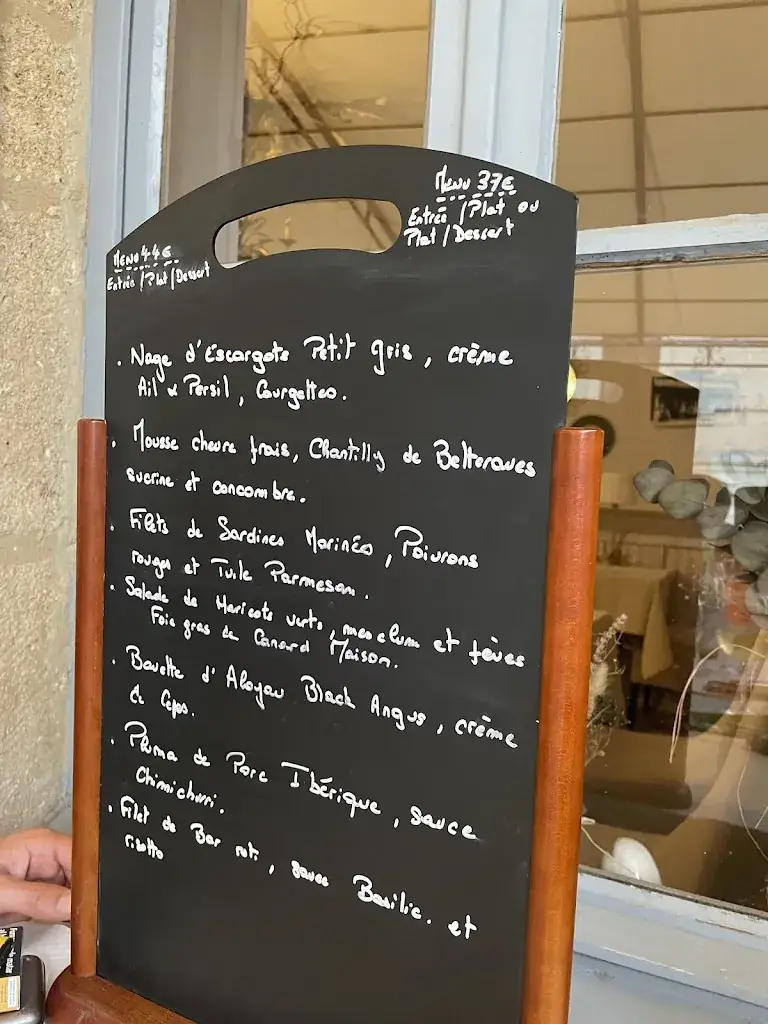 Menu 44€
Entrée / Plat / Dessert
Menu 37€
Entrée / Plat ou
Plat / Dessert
. Nage d'Escargots Petit gris, crème
Ail & Persil, Courgettes.
. Mousse chevre frais, Chantilly de Betteraves
sucrine et concombre.
. Filets de Sardines Marinées, Poivrons
rouges et Tuile Parmesan.
. Salade de Haricots verts, mesclun et fèves
Foie gras de Canard Maison.
. Bavette d'Aloyau Black Angus, crème
de Cèpes.
. Pluma de Porc Ibérique, sauce
Chimichurri.
. Filet de Bar roti, sauce Basilic. et
risotto